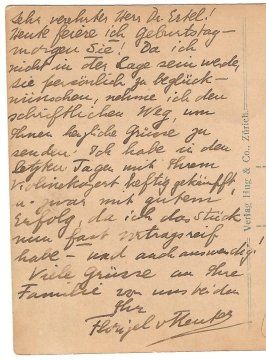 Sehr verehrter Herr Dr. Ertel!
Heute feiere ich Geburtstag –
morgen Sie! Da ich
nicht in der Lage sein werde,
sie persönlich zu beglück-
wünschen, nehme ich den
schriftlichen Weg, um
Ihnen herzliche Grüsse zu
senden. Ich habe in den
letzten Tagen mit Ihrem
Violinekonzert heftig gekämpft
u. zwar mit gutem
Erfolg, da ich das Stück
nun fast vortragsreif
habe – und auch auswendig!
Viele Grüsse an Ihre
Familie von uns beiden
Ihr
Florizel v. Reuter
Verlag Hug & Co., Zürich.